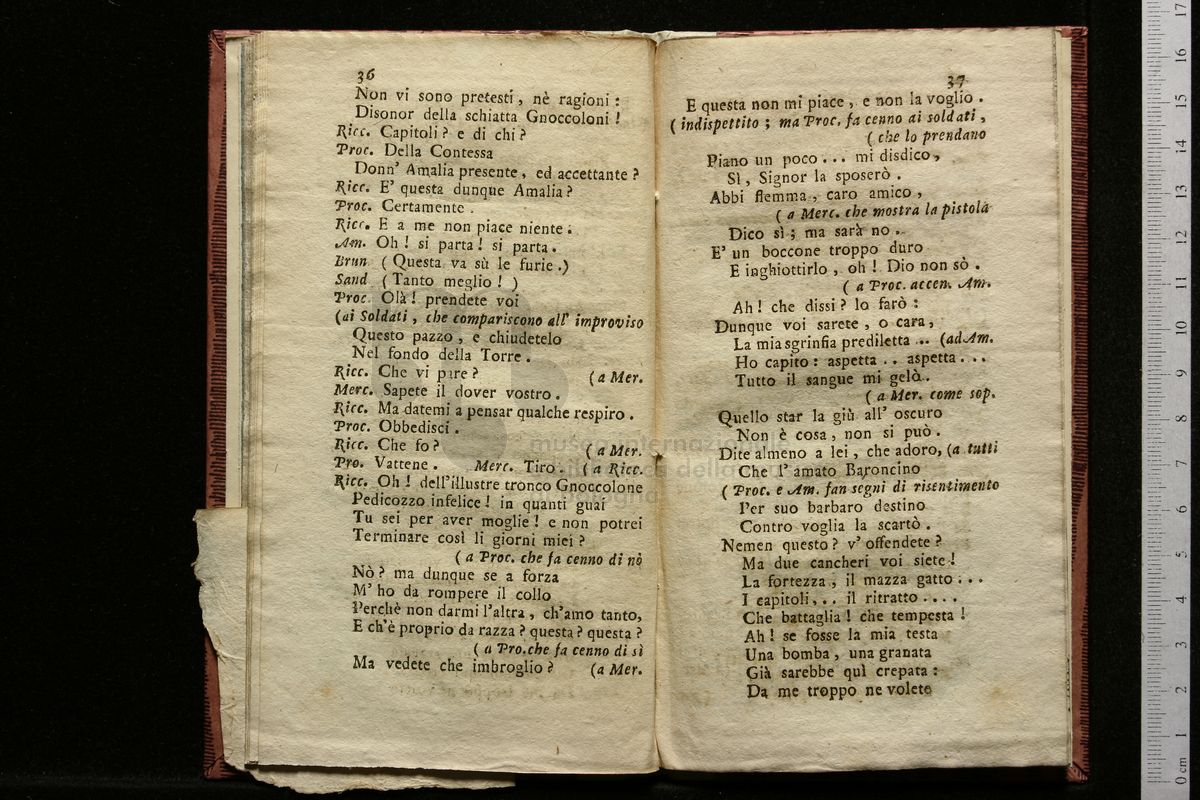 36
Non vi sono pretesti, nè ragioni:
Disonor della schiatta Gnoccoloni!
Ricc. Capitoli? e di chi?
Proc. Della Contessa
Donn' Amalia presente, ed accettante?
Ricc. E' questa dunque Amalia?
Proc. Certamente.
Ricc. E a me non piace niente.
Am. Oh! si parta! si parta.
Brun (Questa va sù le furie.)
Sand (Tanto meglio!)
Proc. Olà! prendete voi
(ai Soldati, che compariscono all' improviso
Questo pazzo, e chiudetelo
Nel fondo della Torre.
Ricc. Che vi pare? (a Mer.
Merc. Sapete il dover vostro.
Ricc. Ma datemi a pensar qualche respiro.
Proc. Obbedisci.
Ricc. Che fo? (a Mer.
Pro. Vattene. Merc. Tiro. (a Ricc.
Ricc. Oh! dell'illustre tronco Gnoccolone
Pedicozzo infelice! in quanti guai
Tu sei per aver moglie! e non potrei
Terminare così li giorni miei?
(a Proc. che fa cenno di nò
Nò? ma dunque se a forza
M' ho da rompere il collo
Perchè non darmi l'altra, ch'amo tanto,
E ch'è proprio da razza? questa? questa?
(a Pro.che fa cenno di sì
Ma vedete che imbroglio? (a Mer.
37
E questa non mi piace, e non la voglio.
(indispettito; ma Proc. fa cenno ai soldati,
(che lo prendano
Piano un poco... mi disdico,
Sì, Signor la sposerò.
Abbi flemma, caro amico,
(a Merc. che mostra la pistola
Dico sì; ma sarà no.
E' un boccone troppo duro
E inghiottirlo, oh! Dio non sò.
(a Proc. accen. Am.
Ah! che dissi? lo farò:
Dunque voi sarete, o cara,
La mia sgrinfia prediletta .. (ad Am.
Ho capito: aspetta .. aspetta...
Tutto il sangue mi gelà..
(a Mer. come sop.
Quello star la giù all' oscuro
Non è cosa, non si può.
Dite almeno a lei, che adoro, (a tutti
Che l' amato Baroncino
(Proc. e Am. fan segni di risentimento
Per suo barbaro destino
Contro voglia la scartò.
Nemen questo? v' offendete?
Ma due cancheri voi siete!
La fortezza, il mazza gatto...
I capitoli,.. il ritratto....
Che battaglia! che tempesta!
Ah! se fosse la mia testa
Una bomba, una granata
Già sarebbe quì crepata:
Da me troppo ne volete